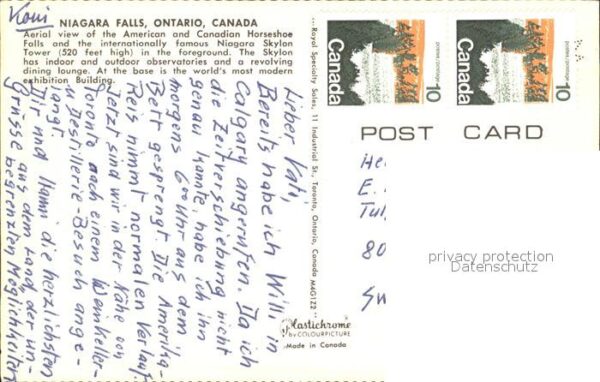 Koni
NIAGARA FALLS, ONTARIO, CANADA
Aerial view of the American and Canadian Horseshoe
Falls and the internationally famous Niagara Skylon
Tower (520 feet high) in the foreground. The Skylon
has indoor and outdoor observatories and a revolving
dining lounge. At the base is the world's most modern
exhibition Building.
Lieber Vati,
Bereits habe ich Willi in
Calgary angerufen. Da ich
die Zeitverschiebung nicht
genau kannte, habe ich ihn
morgens 600 Uhr aus dem
Bett gesprengt. Die Amerika-
Reis nimmt normalen Verlauf
Jetzt sind wir in der Nähe von
Toronto nach einem Weinkeller-
u. Destillerie-Besuch ange-
langt.
Dir und Mami die herzlichsten
Grüsse aus dem Land der un-
begrenzten Möglichkeiten
Royal Specialty Sales, 11 Industrial St., Toronto, Ontario, Canada M4G1Z2
Plastichrome
by COLOURPICTURE
Made in Canada
Canada
10
postes postage
Canada
10
postes postage
POST CARD
He
E.
Tul
80
privacy protection
Datenschutz